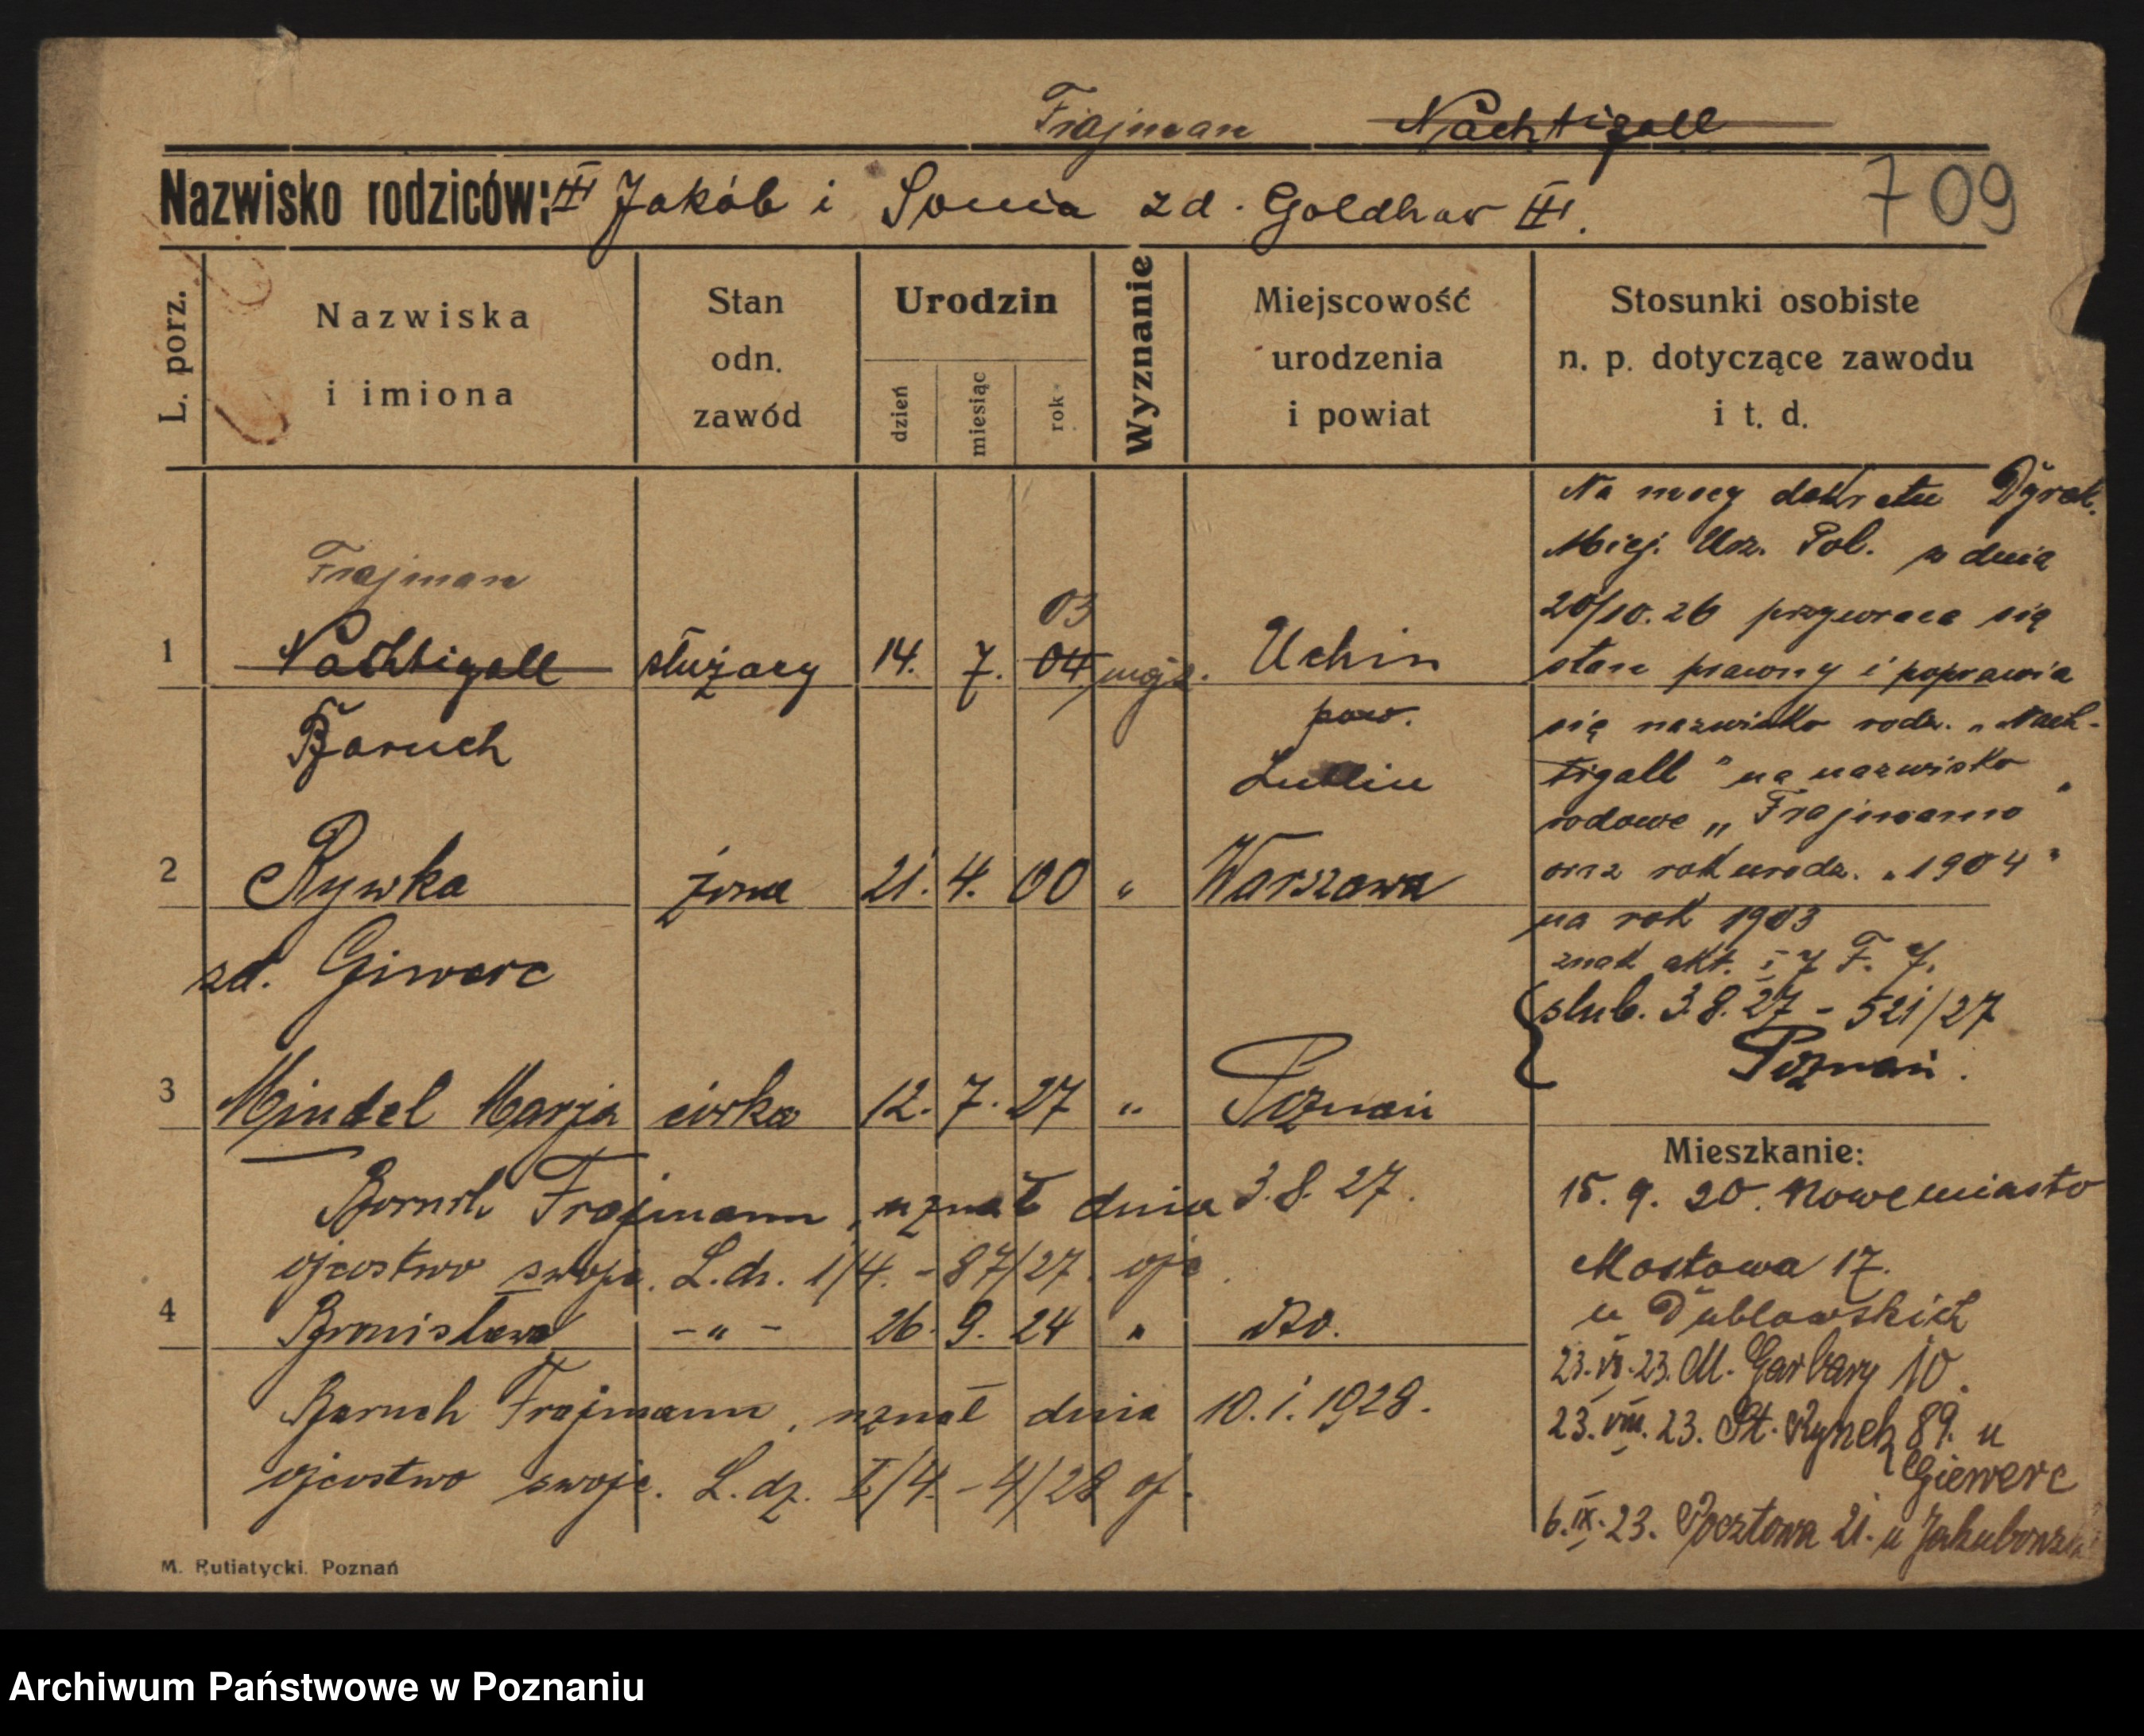 Frajman Nachtigall
Nazwisko rodziców: Jakób i Sonia zd. Goldhar
709
L. porz.
Nazwiska
i imiona
Stan
odn.
zawód
Urodzin
dzień
miesiąc
rok
Wyznanie
Miejscowość
urodzenia
i powiat
Stosunki osobiste
n. p. dotyczące zawodu
i t. d.
Frajman
03
1 Nachtigall służący 14. 7. 04 mojż. Uchin
Baruch pow.
Lublin
2 Rywka żona 21. 4. 00 " Warszawa
zd. Giwerc
3 Mindel Marja córka 12. 7. 27 " Poznań
Baruch Frajmann, uznał dnia 3.8.27.
ojcostwo swoje. L.dz. I/4.-87/27.
4 Bronisława -"- 26. 9. 24 " dto.
Baruch Frajmann, uznał dnia 10.1.1928.
ojcostwo swoje. L.dz. I/4.-4/28
Na mocy dekretu Dyrek.
Miej. Urz. Pol. z dnia
20/10.26 przywraca się
stan prawny i poprawia
się nazwisko rodz. „Nach-
tigall" na nazwisko
rodowe „Frajmann"
oraz rok urodz. „1904"
na rok 1903
znak akt. I 7 F. 7.
slub. 3.8.27 - 521/27
Poznań.
Mieszkanie:
15. 9. 20. Nowemiasto
Mostowa 17.
u Dublowskich
23.VI.23. M. Garbary 10.
23.VIII.23. St. Rynek 89. u
Giewerc
6.IX.23. Pocztowa 21. u
M. Rutiatycki. Poznań
Archiwum Państwowe w Poznaniu